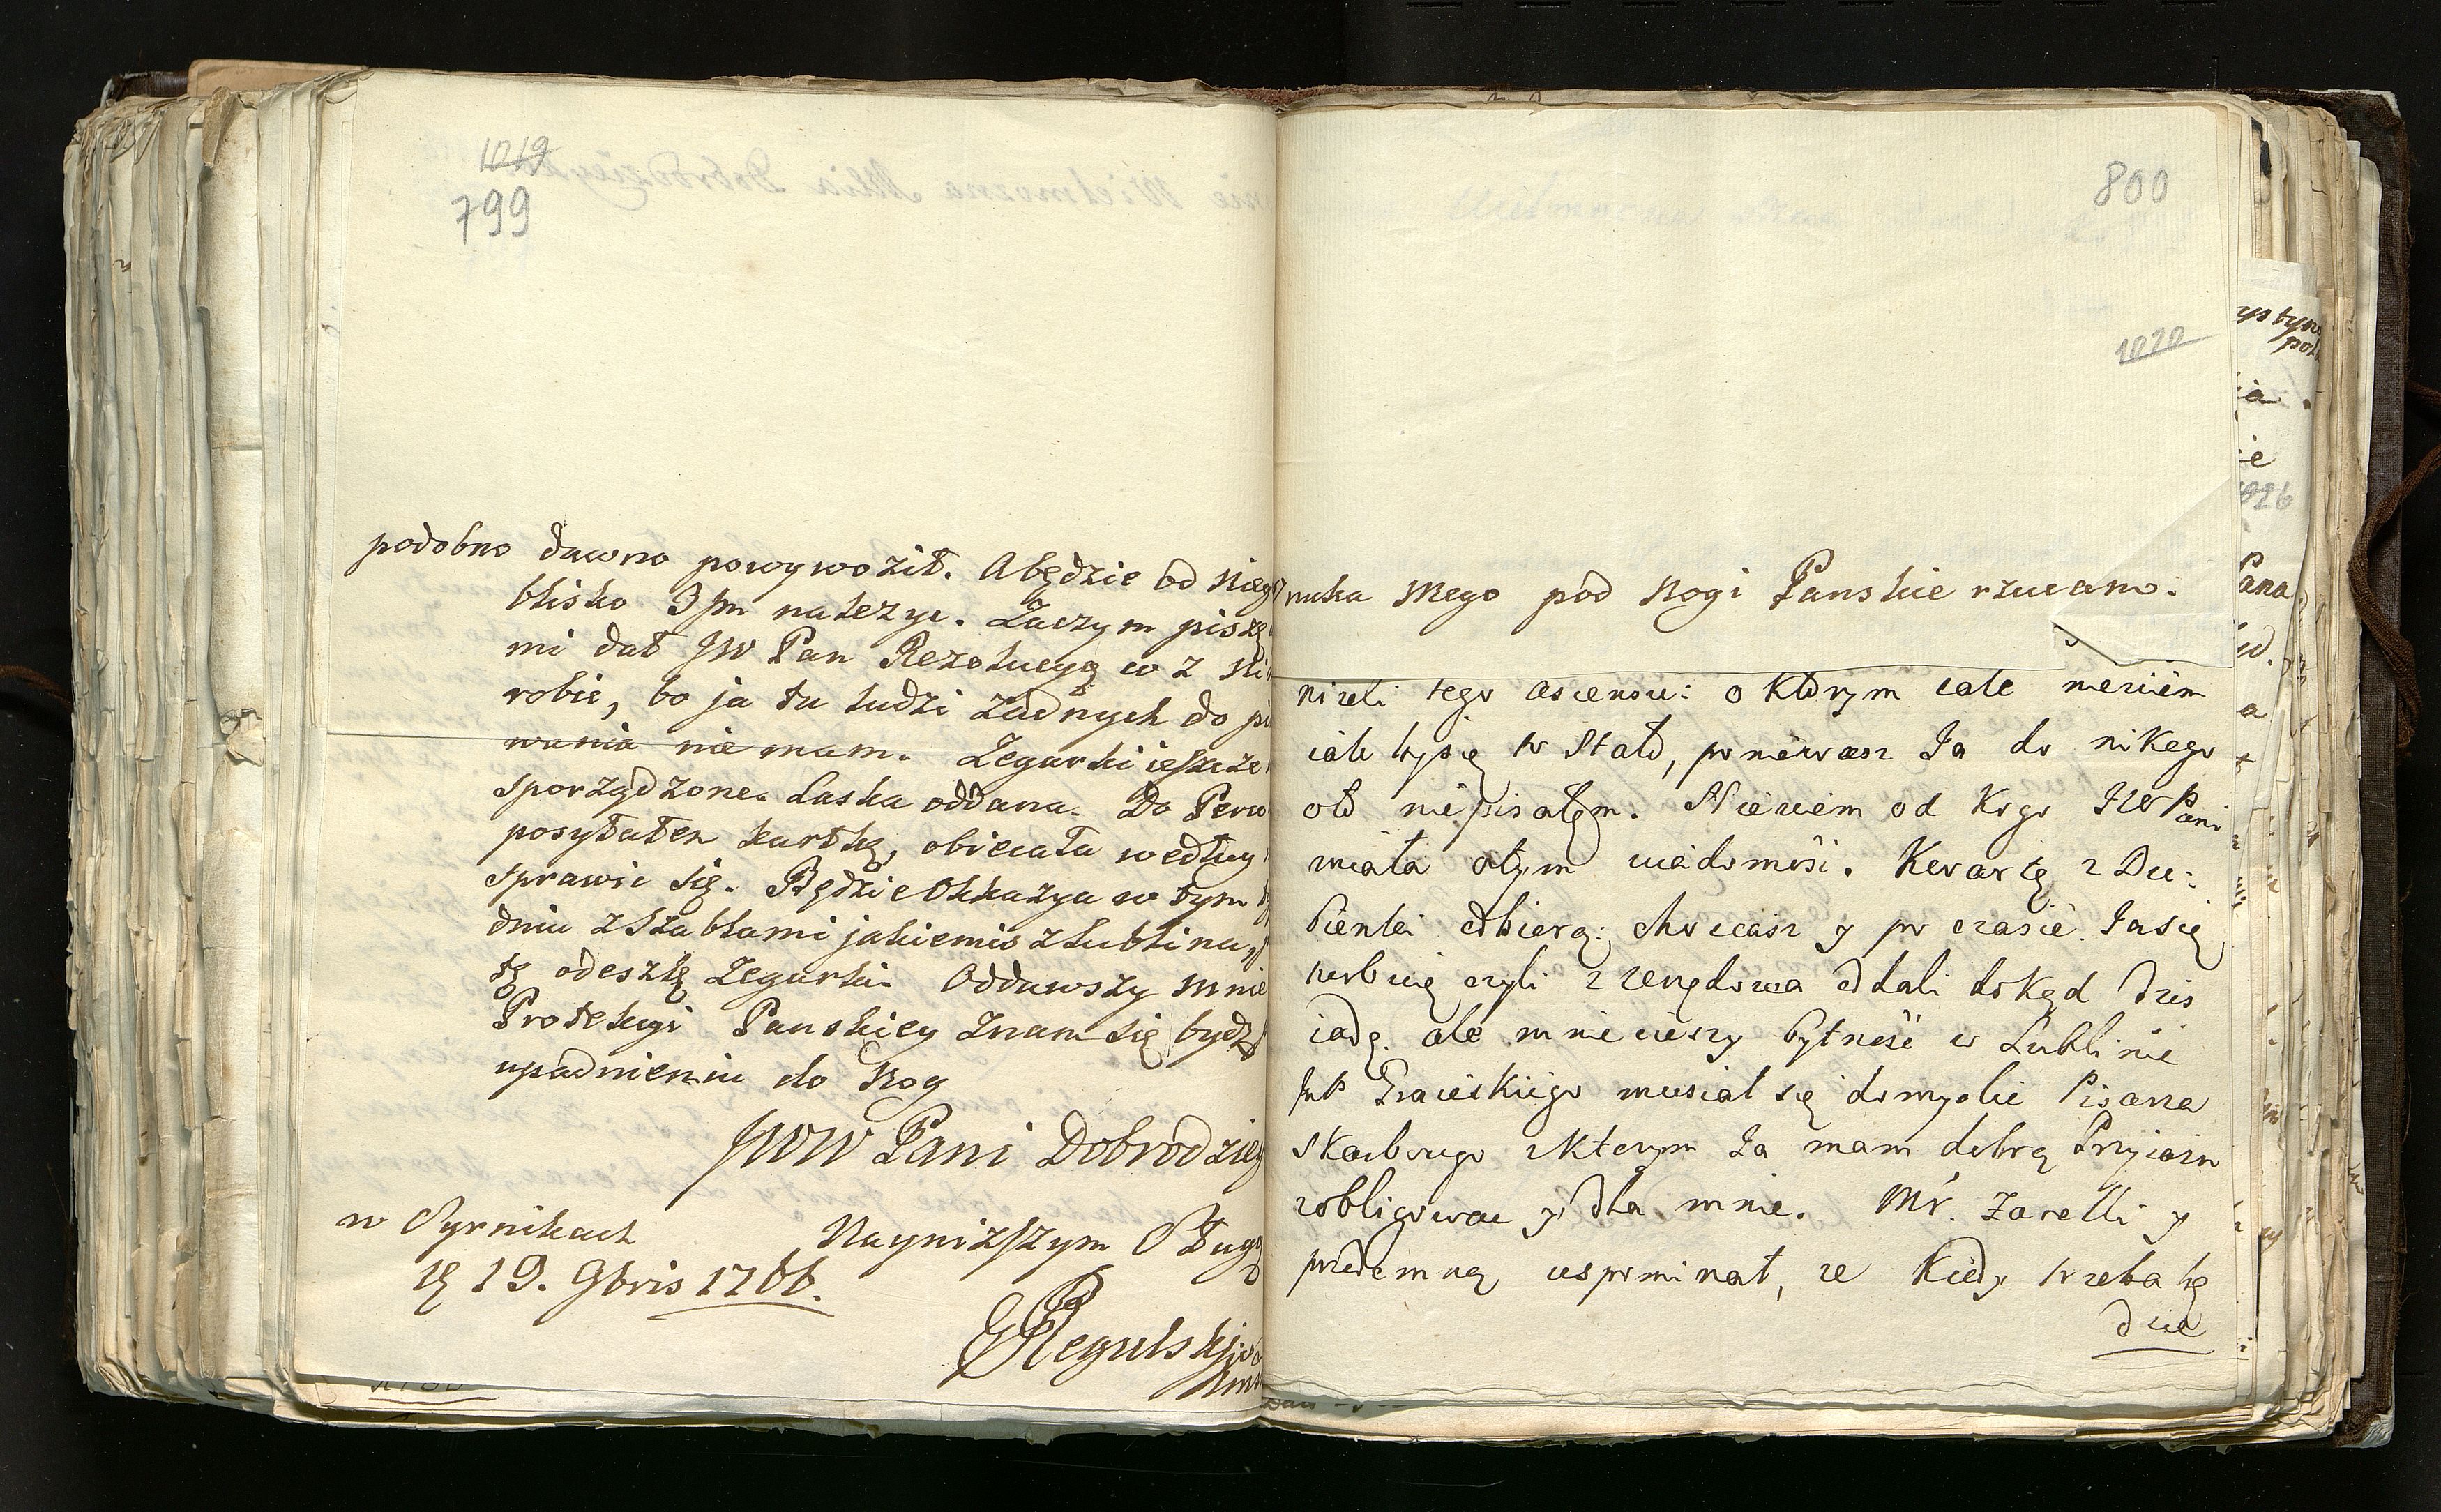 1019
799
podobno dawno powywoził. A będzie od niego
blisko 3 pm należyc. Zaczym piszę
mi dał JW Pan Rezolucyą w z ni
robie, bo ja tu ludzi żadnych do pi
wania nie mam. Zegarki ieszcze
sporządzone. Laska oddana. Do Perw
posyłałem kartkę, obiecała według
sprawic się. Będzie Okkazya w tym ty
dniu z Szablami jakiemis z Lublina,
tą odeszlę Zegarki. Oddawszy mnie
Protekcyi Panskiey znam się bydź
upadnieniu do Nog
JWW Pani Dobrodziey
w Syrnikach
19. 9bris 1766.
Nayniższym Sługą
Regulski
800
1020
nuka Mego pod Nogi Panskie rzucam.
nizeli tego ascensu: o ktorym cale niewiem
iak by się to Stało, poniewasz Ja do nikego
oto niepisałem. Niewiem od Kogo JW Pani
miała otym wiadomość. Kwartę z Du:
bienki odbiorą: chociasz y po czasie. Ja się
czyli z rendowa oddali dokąd dzis
iadę. ale mnie cieszy bytność w Lublinie
musiał się domyslic Pisarza
Skarbowego z ktorym Ja mam dobrą Przyiazn
zobligowac y dla mnie. Mr. Zarelli y
przedemną uspominał, ze Kiedy trzeba bę
dzie